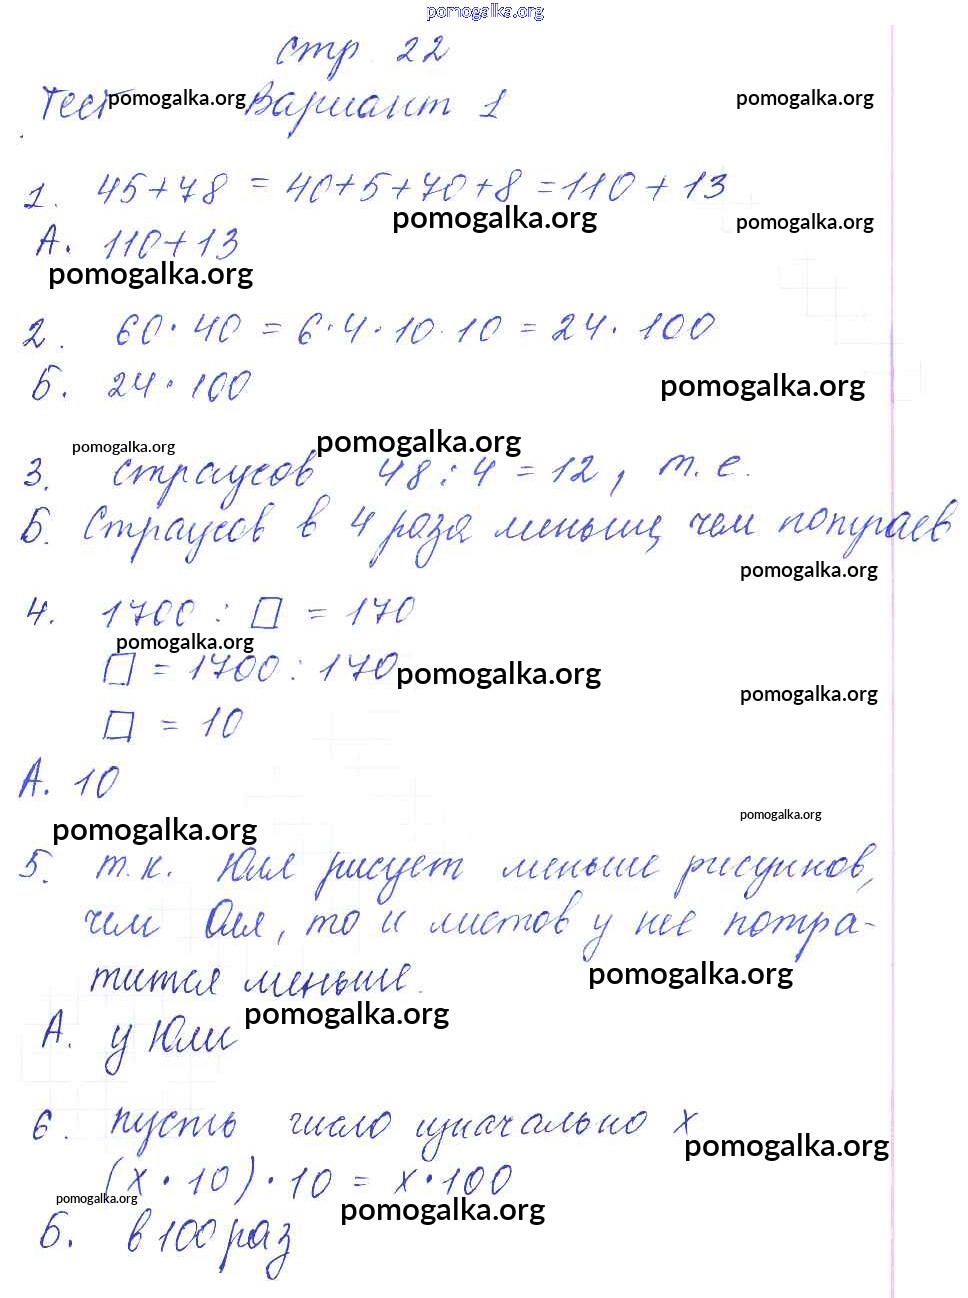 pomogalka.org
стр. 22
Тест pomogalka.org Вариант 1 pomogalka.org
1. 45+78 = 40+5+70+8 = 110 + 13
pomogalka.org pomogalka.org
А. 110+13
pomogalka.org
2. 60·40 = 6·4·10·10 = 24·100
Б. 24·100
pomogalka.org
pomogalka.org pomogalka.org
3. страусов 48:4=12, т.е.
Б. Страусов в 4 раза меньше, чем попугаев
pomogalka.org
4. 1700 : □ = 170
pomogalka.org
□ = 1700 : 170 pomogalka.org
pomogalka.org
□ = 10
А. 10
pomogalka.org pomogalka.org
5. т.к. Юля рисует меньше рисунков,
чем Оля, то и листов у нее потра-
тится меньше.
pomogalka.org
pomogalka.org
А. у Юли
6. пусть число изначально х
pomogalka.org
(х·10)·10 = х·100
pomogalka.org pomogalka.org
Б. в 100 раз